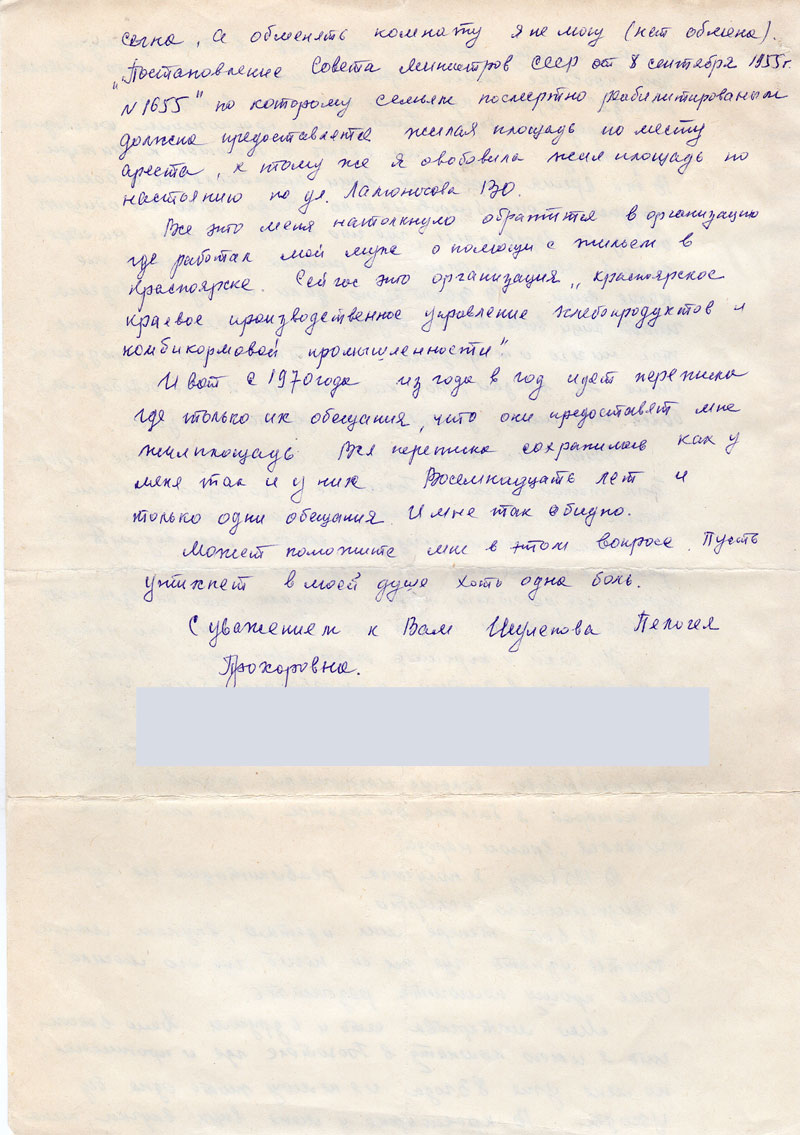 сына. А обменять комнату я не могу (нет обмена).
„Постановление Совета министров СССР от 8 сентября 1955г
N 1655" по которому семьям посмертно рабилитированым
должна предоставлятся жилая площадь по месту
ареста, к тому же я овобовила жил площадь по
настоянию по ул. Ламоносова 130.
Все это меня натолкнуло обратится в организацию
где работал мой муж о помощи с жильем в
Красноярке. Сейчас это организация „Красноярское
краевое производственное управление хлебопродуктов и
комбикормовой промышленности"
И вот с 1970 года из года в год идет переписка
где только их обещания, что они предоставят мне
жилплощадь. Вся переписка сохранилась как у
меня так и у них. Восемнадцать лет и
только одни обещания. И мне так обидно.
Может поможите мне в этом вопросе. Пусть
утихнет в моей душе хоть одна боль.
С уважением к Вам Шулепова Пелогея
Прохоровна.